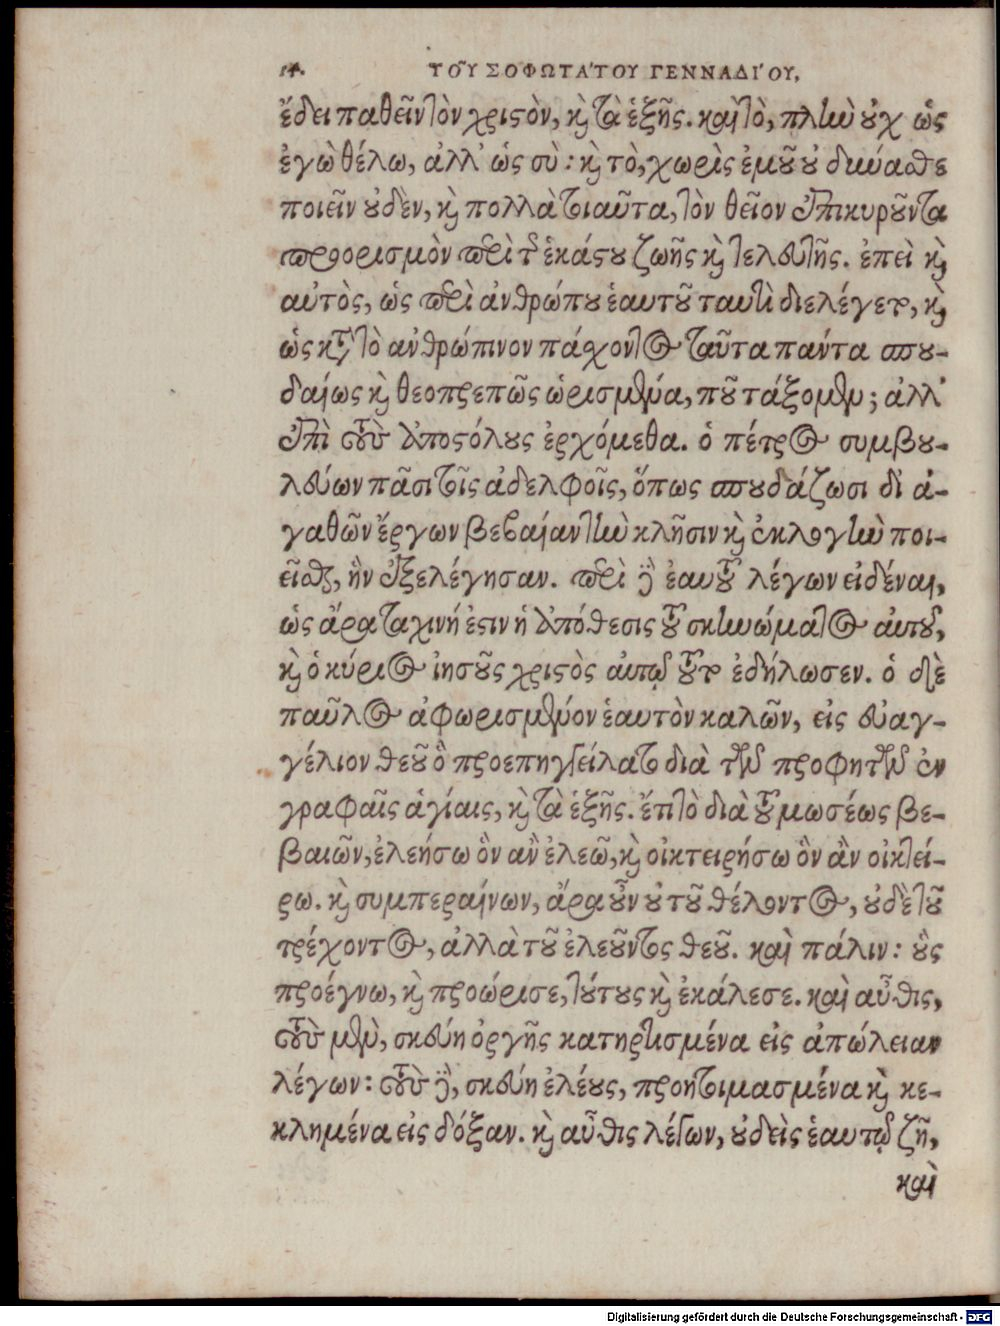 14. ΤΟΥ͂ ΣΟΦΩΤΑ΄ΤΟΥ ΓΕΝΝΑΔΙ΄ΟΥ,
ἔδει παθεῖν τὸν χριστὸν, καὶ τὰ ἑξῆς. καὶ τὸ, πλὴν οὐχ ὡς
ἐγὼ θέλω, ἀλλ' ὡς σύ: καὶ τὸ, χωρὶς ἐμοῦ οὐ δύνασθε
ποιεῖν οὐδὲν, καὶ πολλὰ τοιαῦτα, τὸν θεῖον ἐπικυροῦντα
προορισμὸν περὶ τῆς ἑκάστου ζωῆς καὶ τελευτῆς. ἐπεὶ καὶ
αὐτὸς, ὡς περὶ ἀνθρώπου ἑαυτοῦ ταυτὶ διελέγετο, καὶ
ὡς κατὰ τὸ ἀνθρώπινον πάσχοντος ταῦτα πάντα σπου-
δαίως καὶ θεοπρεπῶς ὡρισμένα, ποῦ τάξομεν; ἀλλ'
ἐπὶ τοὺς ἀποστόλους ἐρχόμεθα. ὁ πέτρος συμβου-
λεύων πᾶσι τοῖς ἀδελφοῖς, ὅπως σπουδάζωσι δι' ἀ-
γαθῶν ἔργων βεβαίαν τὴν κλῆσιν καὶ ἐκλογὴν ποι-
εῖσθαι, ἣν ἐξελέγησαν. περὶ δὲ ἑαυτοῦ λέγων εἰδέναι,
ὡς ἄρα ταχινή ἐστιν ἡ ἀπόθεσις τοῦ σκηνώματος αὐτοῦ,
καὶ ὁ κύριος ἰησοῦς χριστὸς αὐτῷ τοῦτο ἐδήλωσεν. ὁ δὲ
παῦλος ἀφωρισμένον ἑαυτὸν καλῶν, εἰς εὐαγ-
γέλιον θεοῦ ὃ προεπηγγείλατο διὰ τῶν προφητῶν ἐν
γραφαῖς ἁγίαις, καὶ τὰ ἑξῆς. ἔτι τὸ διὰ τοῦ μωσέως βε-
βαιῶν, ἐλεήσω ὃν ἂν ἐλεῶ, καὶ οἰκτειρήσω ὃν ἂν οἰκτεί-
ρω. καὶ συμπεραίνων, ἄρα οὖν οὐ τοῦ θέλοντος, οὐδὲ τοῦ
τρέχοντος, ἀλλὰ τοῦ ἐλεοῦντος θεοῦ. καὶ πάλιν: οὓς
προέγνω, καὶ προώρισε, τούτους καὶ ἐκάλεσε. καὶ αὖθις,
τοὺς μὲν, σκεύη ὀργῆς κατηρτισμένα εἰς ἀπώλειαν
λέγων: τοὺς δὲ, σκεύη ἐλέους, προητοιμασμένα καὶ κε-
κλημένα εἰς δόξαν. καὶ αὖθις λέγων, οὐδεὶς ἑαυτῷ ζῇ,
καὶ
Digitalisierung gefördert durch die Deutsche Forschungsgemeinschaft - DFG